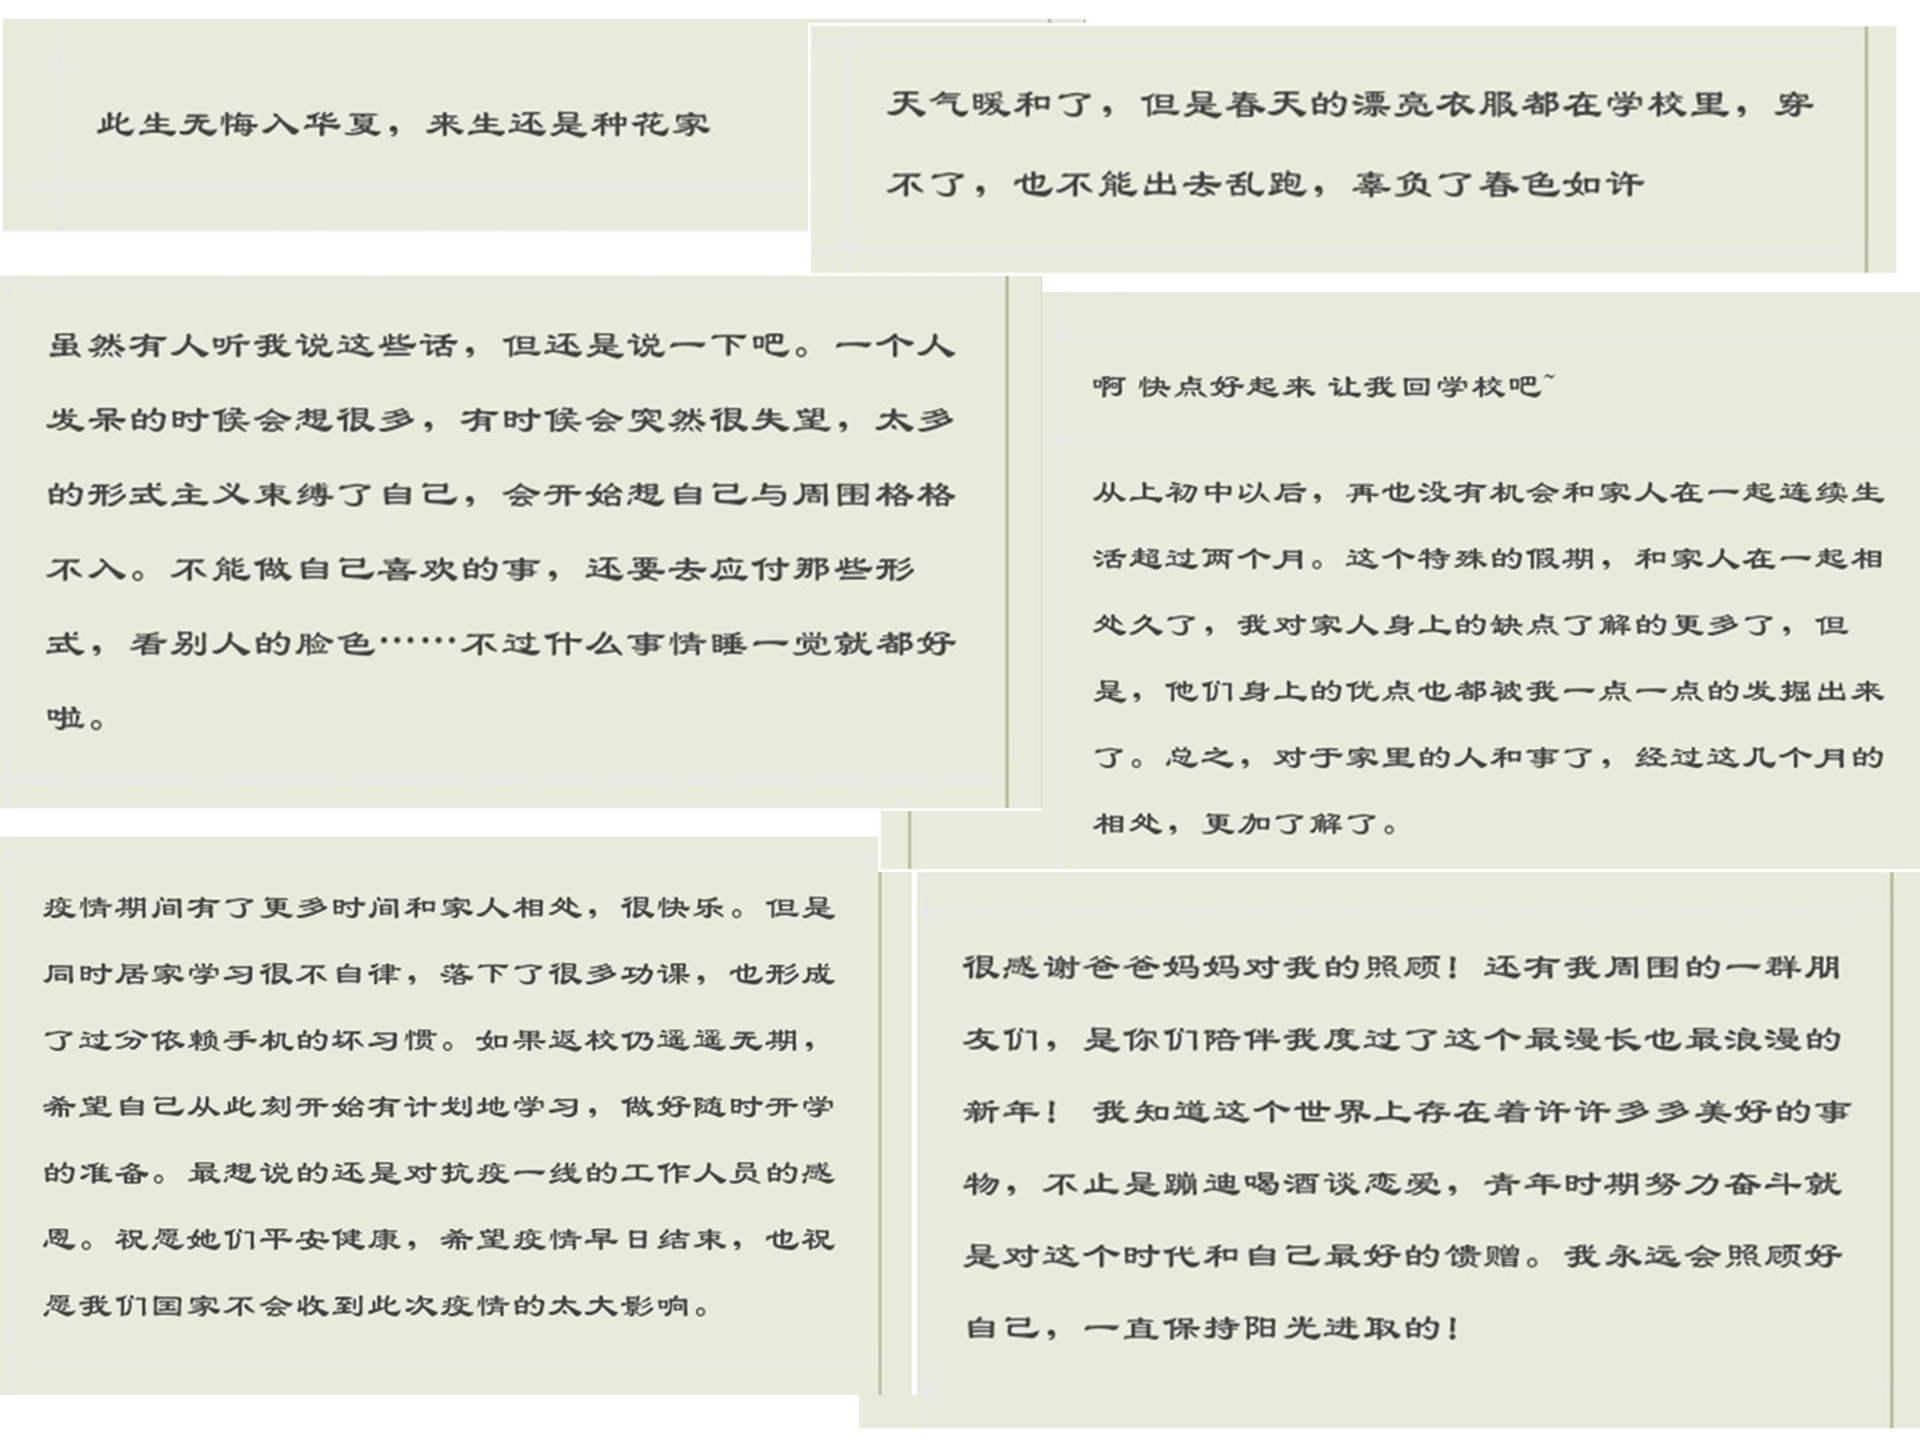 此生无悔入华夏，来生还是种花家
天气暖和了，但是春天的漂亮衣服都在学校里，穿
不了，也不能出去乱跑，辜负了春色如许
虽然有人听我说这些话，但还是说一下吧。一个人
发呆的时候会想很多，有时候会突然很失望，太多
的形式主义束缚了自己，会开始想自己与周围格格
不入。不能做自己喜欢的事，还要去应付那些形
式，看别人的脸色……不过什么事情睡一觉就都好
啦。
啊 快点好起来 让我回学校吧~
从上初中以后，再也没有机会和家人在一起连续生
活超过两个月。这个特殊的假期，和家人在一起相
处久了，我对家人身上的缺点了解的更多了，但
是，他们身上的优点也都被我一点一点的发掘出来
了。总之，对于家里的人和事了，经过这几个月的
相处，更加了解了。
疫情期间有了更多时间和家人相处，很快乐。但是
同时居家学习很不自律，落下了很多功课，也形成
了过分依赖手机的坏习惯。如果返校仍遥遥无期，
希望自己从此刻开始有计划地学习，做好随时开学
的准备。最想说的还是对抗疫一线的工作人员的感
恩。祝愿她们平安健康，希望疫情早日结束，也祝
愿我们国家不会收到此次疫情的太大影响。
很感谢爸爸妈妈对我的照顾！还有我周围的一群朋
友们，是你们陪伴我度过了这个最漫长也最浪漫的
新年！ 我知道这个世界上存在着许许多多美好的事
物，不止是蹦迪喝酒谈恋爱，青年时期努力奋斗就
是对这个时代和自己最好的馈赠。我永远会照顾好
自己，一直保持阳光进取的！